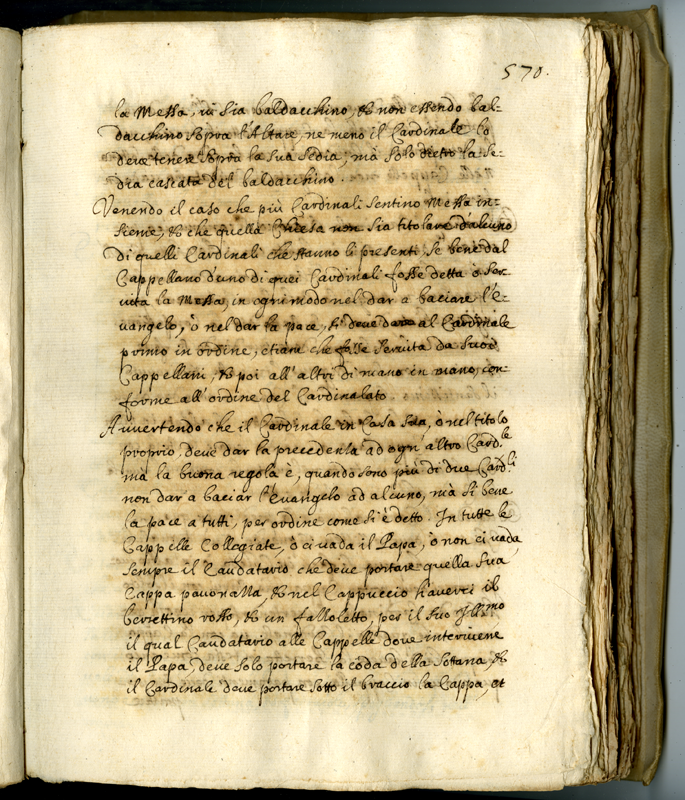 570.
la Messa, vi sia baldacchino, & non essendo bal-
dacchino sopra l'Altare, ne meno il Cardinale lo
deve tenere sopra la sua sedia, mà solo dietro la se-
dia cascata del baldacchino.
Venendo il caso che più Cardinali sentino Messa in-
sieme, & che quella Chiesa non sia titolare d'alcuno
di quelli Cardinali che stanno li presenti, se bene dal
Cappellano d'uno di quei Cardinali fosse detta ò ser-
vita la Messa, in ogni modo nel dar a baciare l'E-
vangelo, ò nel dar la pace, si deve dare al Cardinale
primo in ordine, etiam che fosse servita da suoi
Cappellani, & poi all'altri di mano in mano, con-
forme all'ordine del Cardinalato.
Avvertendo che il Cardinale in Casa sua, ò nel titolo
proprio, deve dar la precedenza ad ogn'altro Card.le
ma la buona regola è, quando sono più di due Card.li
non dar a baciar l'Evangelo ad alcuno, mà si bene
la pace a tutti, per ordine come si è detto. In tutte le
Cappelle Collegiate, ò ci vada il Papa, ò non ci vada,
sempre il Caudatario che deve portare quella sua
Cappa pavonazza, & nel Cappuccio haverci il
berettino rosso, & un fazzoletto, per il suo Ill.mo
il qual Caudatario alle Cappelle dove interviene
il Papa deve solo portare la coda della sottana, &
il Cardinale deve portare sotto il braccio la Cappa, et